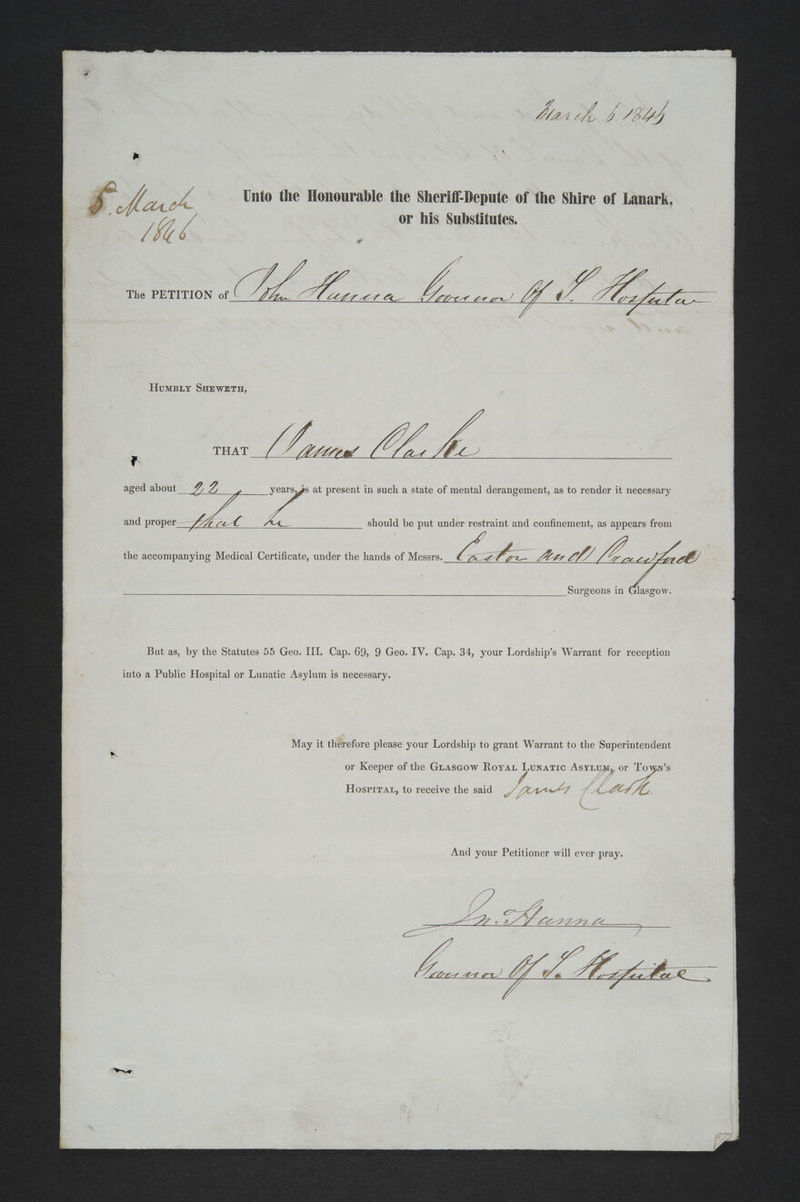 March 6. 1846
5. March
1846
Unto the Honourable the Sheriff-Depute of the Shire of Lanark,
or his Substitutes.
The PETITION of John Hanna Govenor Of T. Hospital
HUMBLY SHEWETH,
THAT James Clarke
aged about 22 years, is at present in such a state of mental derangement, as to render it necessary
and proper that he should be put under restraint and confinement, as appears from
the accompanying Medical Certificate, under the hands of Messrs. Easton and Crawford
Surgeons in Glasgow.
But as, by the Statutes 55 Geo. III. Cap. 69, 9 Geo. IV. Cap. 34, your Lordship's Warrant for reception
into a Public Hospital or Lunatic Asylum is necessary.
May it therefore please your Lordship to grant Warrant to the Superintendent
or Keeper of the GLASGOW ROYAL LUNATIC ASYLUM, or TOWN'S
HOSPITAL, to receive the said James Clark.
And your Petitioner will ever pray.
Jn. Hanna
Govenor Of T. Hospital